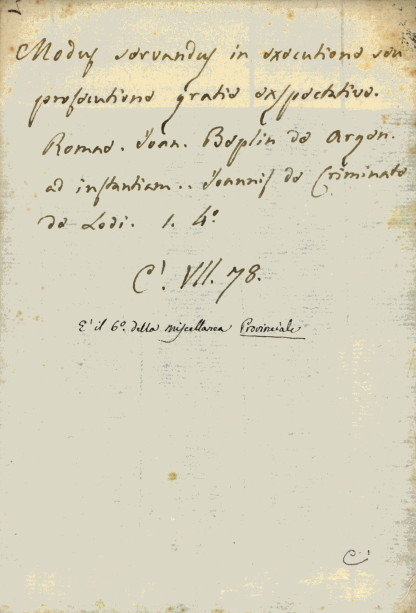 Modus servandus in executione seu
prosecutione gratie expectative.
Romae. Joan. Beplin de Argen.
ad instantiam.. Joannis de Criminate
de Lodi. 1. 4º.
C'. VII. 78.
E' il 6º. della miscellanea Provinciale
C'